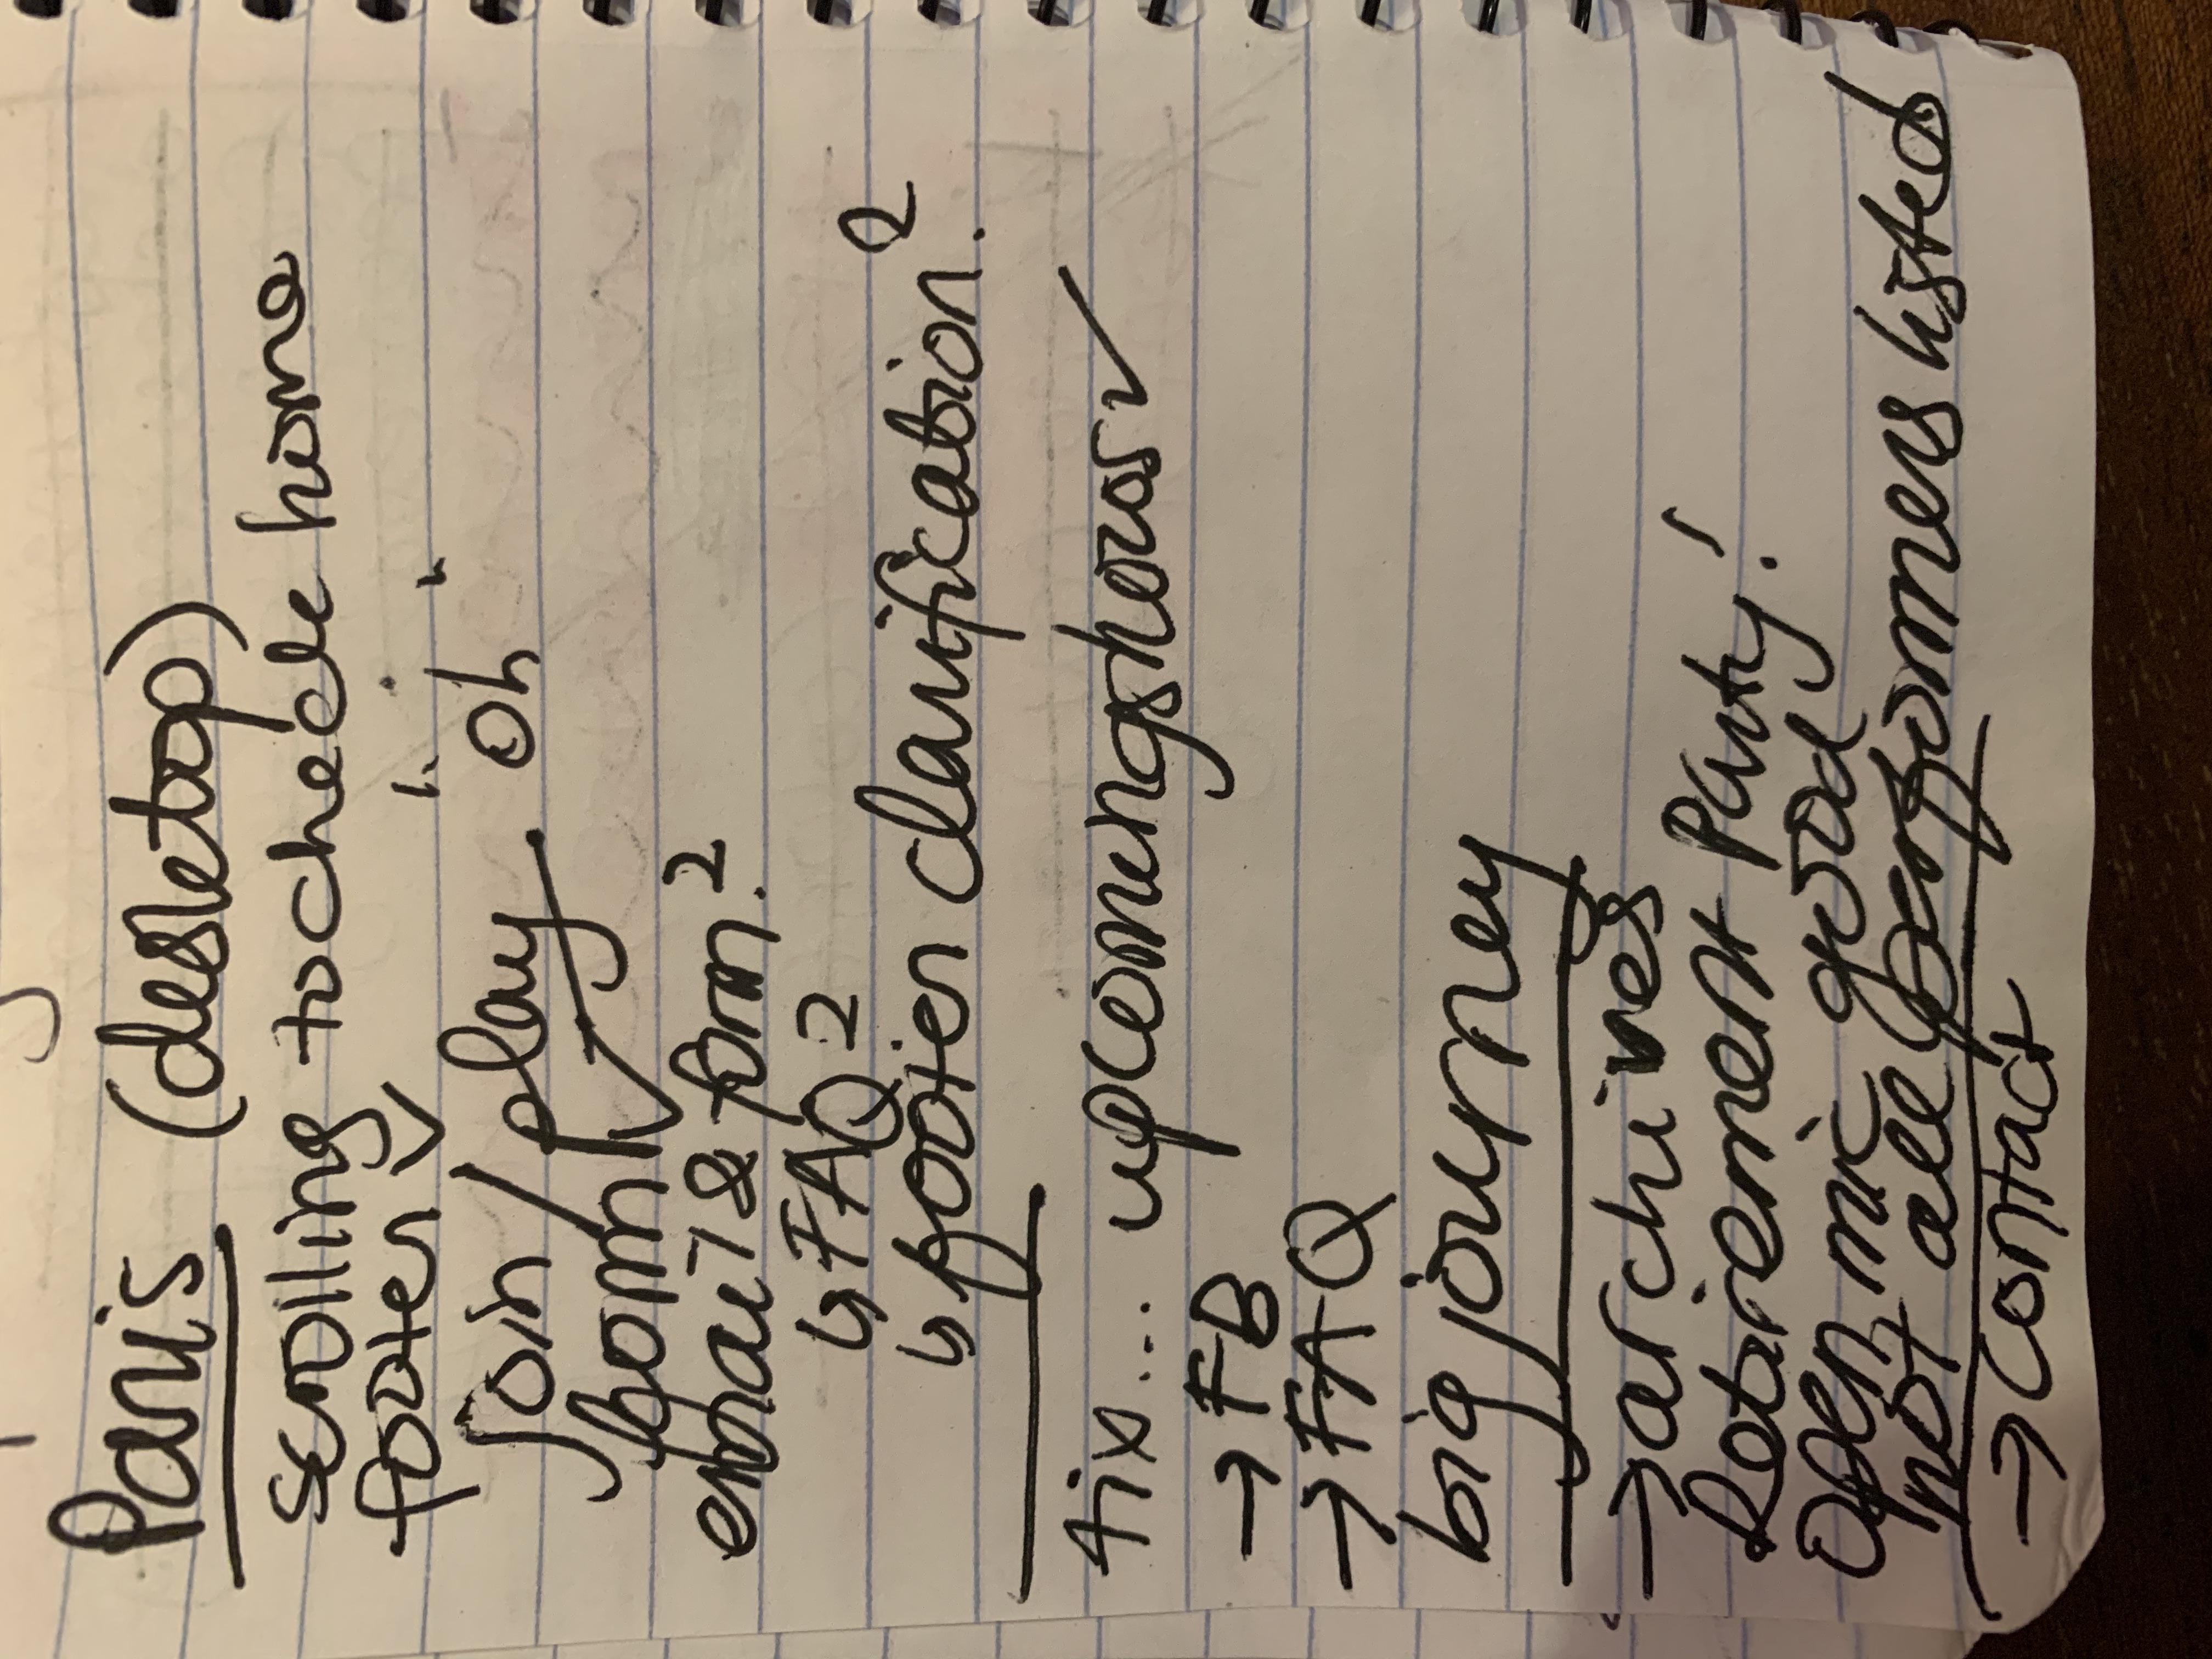 Paris (desktop)
scrolling to check home
footer ✓
join / play "oh"
form ✓
email & form?
↳ FAQ?
↳ footer clarification?
tix... upcoming shows ✓
→ FB
→ FAQ
big journey
→ archives
Retirement Party!
Open mic good
not all performers listed
→ contact